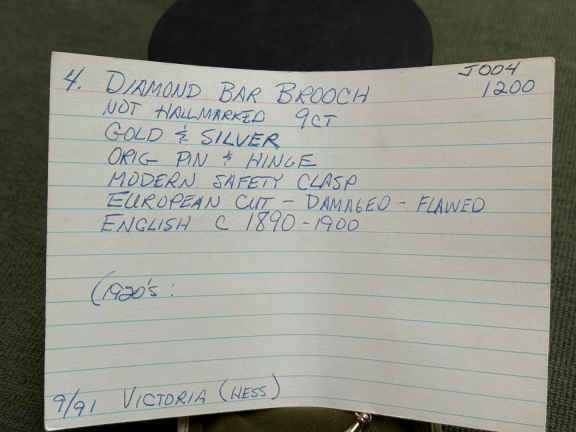 J004
4. DIAMOND BAR BROOCH 1200
NOT HALLMARKED 9CT
GOLD & SILVER
ORIG PIN & HINGE
MODERN SAFETY CLASP
EUROPEAN CUT - DAMAGED - FLAWED
ENGLISH C 1890-1900
(1920's :
9/91 VICTORIA (HESS)